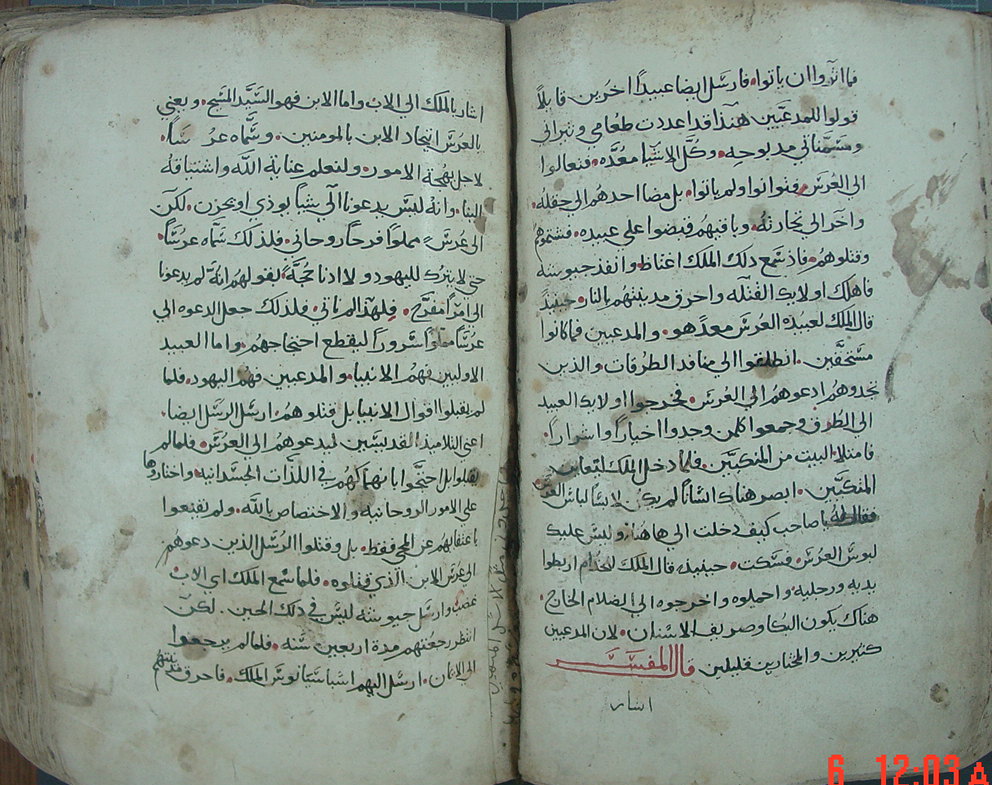 فما اثروا ان ياتوا. فارسل ايضا عبيداً اخرين قايلاً
قولوا للمدعيين هنذا قد اعددت طعامي وثيراني
ومسمناتي مدبوحه. وكل الاشيا معده. فتعالوا
الى العرس. فتوانوا ولم ياتوا. بل مضا احدهم الى حقله.
واخر الى تجارته. وباقيهم قبضوا على عبيده. فشتموهم
وقتلوهم. فاذ سمع ذلك الملك اغتاظ. وانفذ جيوشه
فاهلك اولايك القتله واحرق مدينتهم بالنار. حينيذ
قال الملك لعبيده العرس معد هو. والمدعيين فما كانوا
مستحقين. انطلقوا الى منافد الطرقات والذين
تجدوهم ادعوهم الى العرس. فخرجوا اولايك العبيد
الى الطرق وجمعوا كلمن وجدوا اخياراً واشراراً.
فامتلا البيت من المتكيين. فلما دخل الملك ليعاين
المتكيين. ابصر هناك انساناً لم يكن لابساً لباس العرس
فقال له يا صاحب كيف دخلت الى هاهنا. وليس عليك
لبوس العرس. فسكت. حينيذ قال الملك للخدام اربطوا
يديه ورجليه واحملوه واخرجوه الى الضلام الخارج.
هناك يكون البكا وصريف الاسنان. لان المدعيين
كتيرين والمختارين قليلين. قال المفسر
اشار
اشار بالملك الى الاب واما الابن فهو السيد المسيح. ويعني
بالعرس اتحاد الابن بالمومنين. وسماه عرساً.
لاجل بهجة الامور. ولنعلم عناية الله واشتياقه
الينا. وانه ليس يدعونا الى شياً يوذي او يحزن. لكن
الى عرس مملواً فرحاً روحاني. فلذلك سماه عرساً.
حتى لا يترك لليهود ولا ادنا حجة. لقولهم انه لم يدعونا
الى امراً مفرح. فلهذا لم ناتي. فلذلك جعل الدعوه الى
عرساً مملواً سروراً ليقطع احتجاجهم. واما العبيد
الاوليين فهم الانبيا. والمدعيين فهم اليهود. فلما
لم يقبلوا اقوال الانبيا بل قتلوهم. ارسل الرسل ايضا.
اعني التلاميذ القديسين ليدعوهم الى العرس. فلما لم
يقبلوا بل احتجوا بانهماكهم في اللذات الجسدانيه. واختاروها
على الامور الروحانيه والاختصاص بالله. ولم يقنعوا
باعتفايهم عن المجي فقط. بل وقتلوا الرسل الذين دعوهم
الى عرس الابن الذي قتلوه. فلما سمع الملك اي الاب
غضب وارسل جيوشه ليس في ذلك الحين. لكن
انتظر رجعتهم مدة اربعين سنه. فلما لم يرجعوا
الى الايمان. ارسل اليهم اسباسيانوس الملك. فاحرق مدينتهم